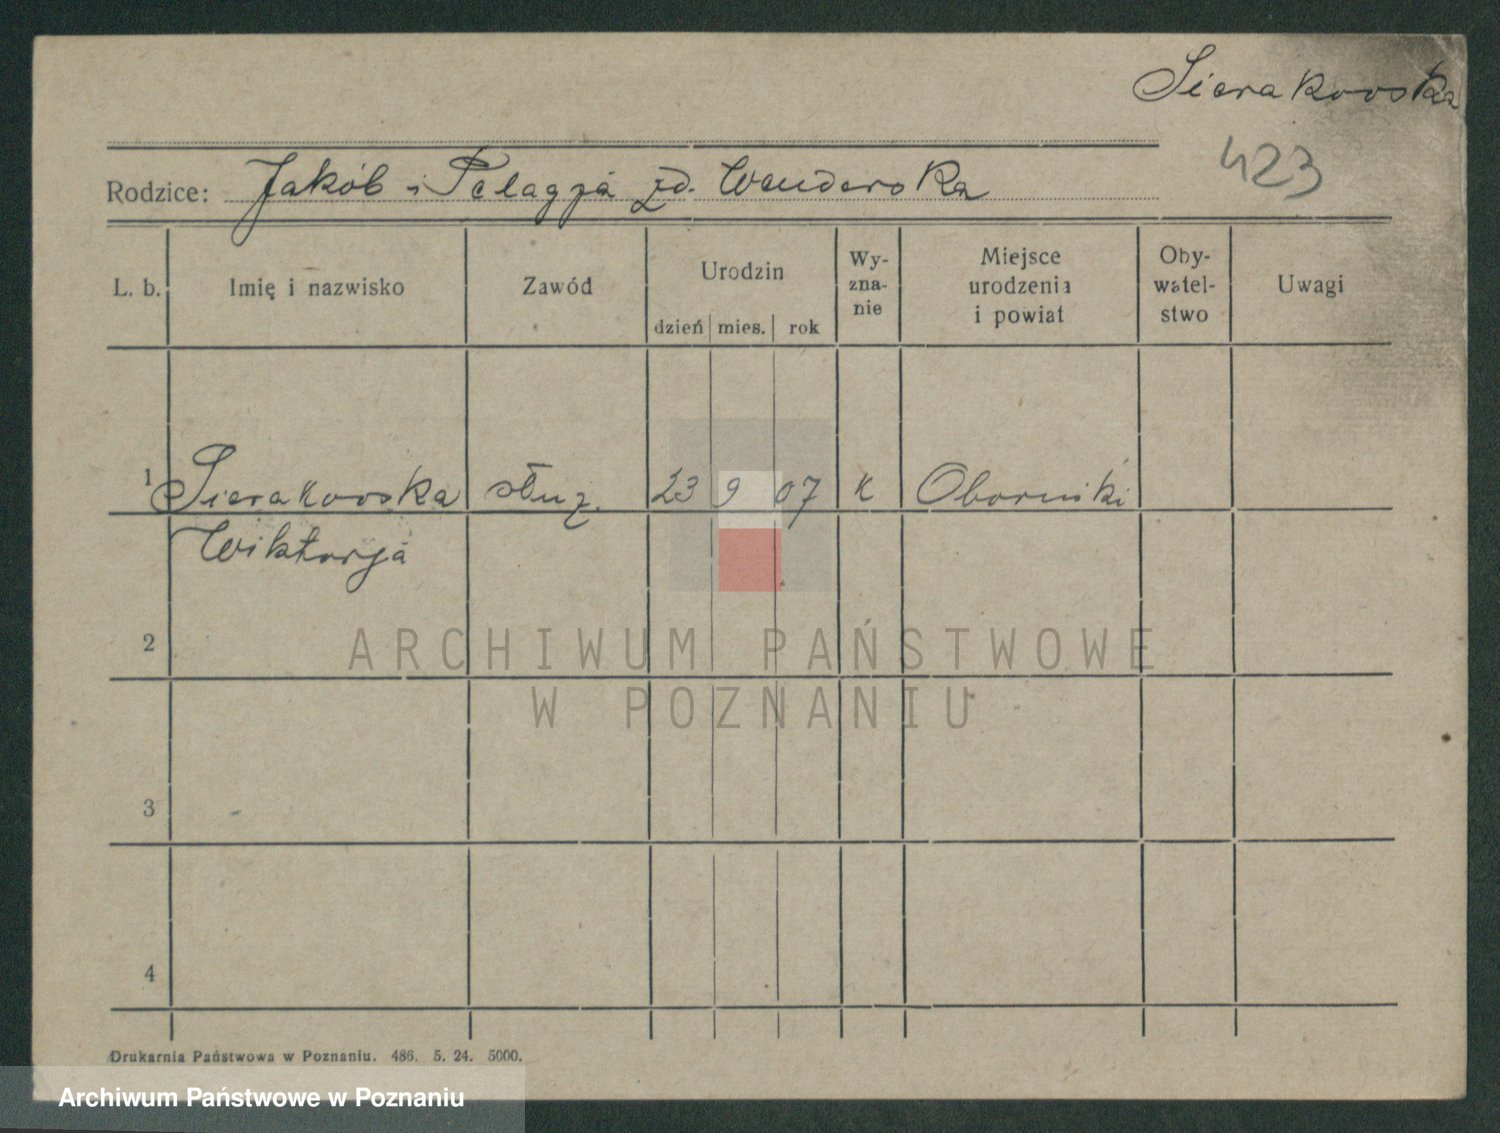 Sierakowska
423
Rodzice: Jakób i Pelagja zd. Wenderska
L. b. Imię i nazwisko Zawód Urodzin dzień mies. rok Wy-zna-nie Miejsce urodzenia i powiat Oby-watel-stwo Uwagi
1 Sierakowska służ. 23 9 07 k Oborniki
Wiktorja
2
ARCHIWUM PAŃSTWOWE
W POZNANIU
3
4
Drukarnia Państwowa w Poznaniu. 486. 5. 24. 5000.
Archiwum Państwowe w Poznaniu